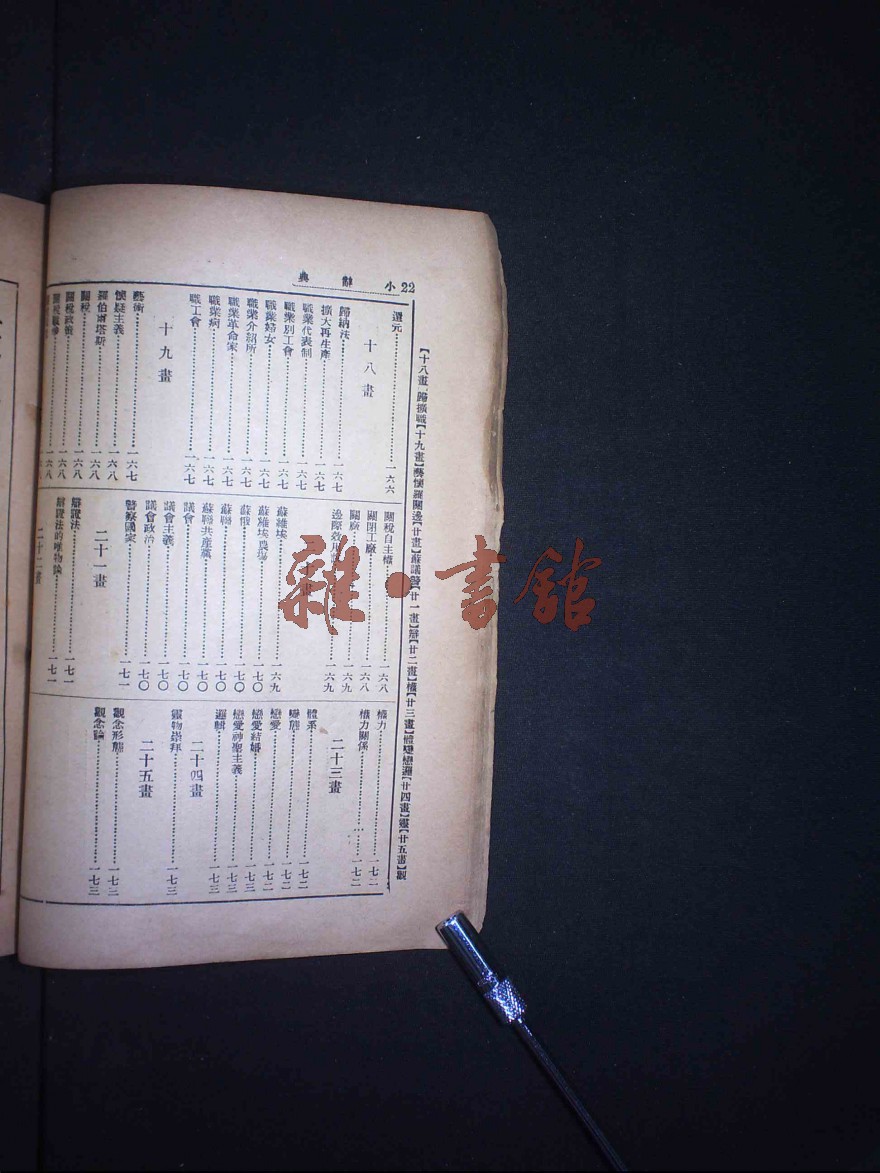 小辭典 22
【十八畫】歸擴職【十九畫】藝懷羅關邊【廿畫】蘇議警【廿一畫】辯【廿二畫】權【廿三畫】體變戀邏【廿四畫】靈【廿五畫】觀
還元……一六六
十八畫
歸納法……一六七
擴大再生產……一六七
職業代表制……一六七
職業別工會……一六七
職業婦女……一六七
職業介紹所……一六七
職業革命家……一六七
職業病……一六七
職工會……一六七
十九畫
藝術……一六七
懷疑主義……一六八
羅伯爾塔斯……一六八
關稅……一六八
關稅政策……一六八
關稅戰爭……一六八
關稅自主權……一六八
關閉工廠……一六八
關廠……一六九
邊際效用……一六九
畫
蘇維埃……一六九
蘇維埃農場……一七〇
蘇俄……一七〇
蘇聯……一七〇
蘇聯共產黨……一七〇
議會……一七〇
議會主義……一七〇
議會政治……一七〇
警察國家……一七一
二十一畫
辯證法……一七一
辯證法的唯物論……一七一
二十二畫
權力……一七二
權力關係……一七二
二十三畫
體系……一七二
變態……一七二
戀愛……一七二
戀愛結婚……一七三
戀愛神聖主義……一七三
邏輯……一七三
二十四畫
靈物崇拜……一七三
二十五畫
觀念形態……一七三
觀念論……一七三
雜·書館